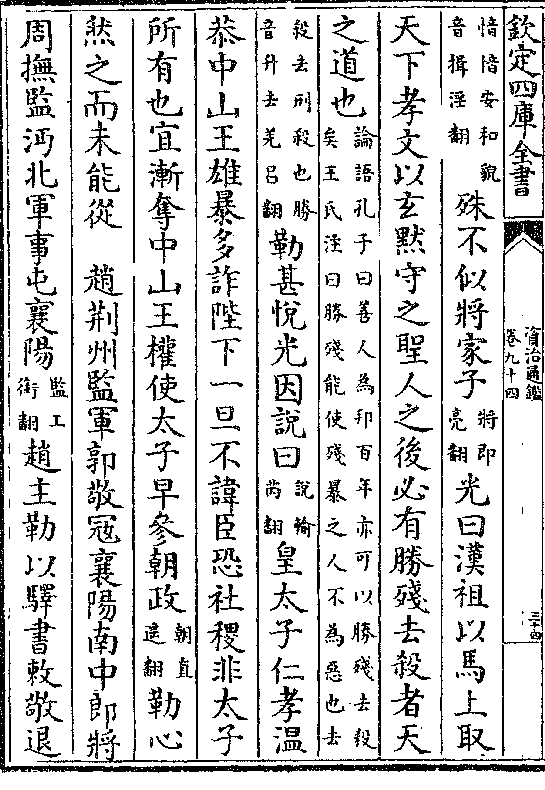 欽定四庫全書
資治通鑑
卷九十四
三十四
愔愔安和貌
音揖淫翻
殊不似將家子
將即
亮翻
光曰漢祖以馬上取
天下孝文以玄默守之聖人之後必有勝殘去殺者天
之道也
論語孔子曰善人為邦百年亦可以勝殘去殺
矣王氏注曰勝殘能使殘暴之人不為惡也去
殺去刑殺也勝
音升去羌呂翻
勒甚悅光因說曰
說輸
芮翻
皇太子仁孝温
恭中山王雄暴多詐陛下一旦不諱臣恐社稷非太子
所有也宜漸奪中山王權使太子早參朝政
朝直
遥翻
勒心
然之而未能從 趙荆州監軍郭敬冦襄陽南中郎將
周撫監沔北軍事屯襄陽
監工
銜翻
趙主勒以驛書敕敬退